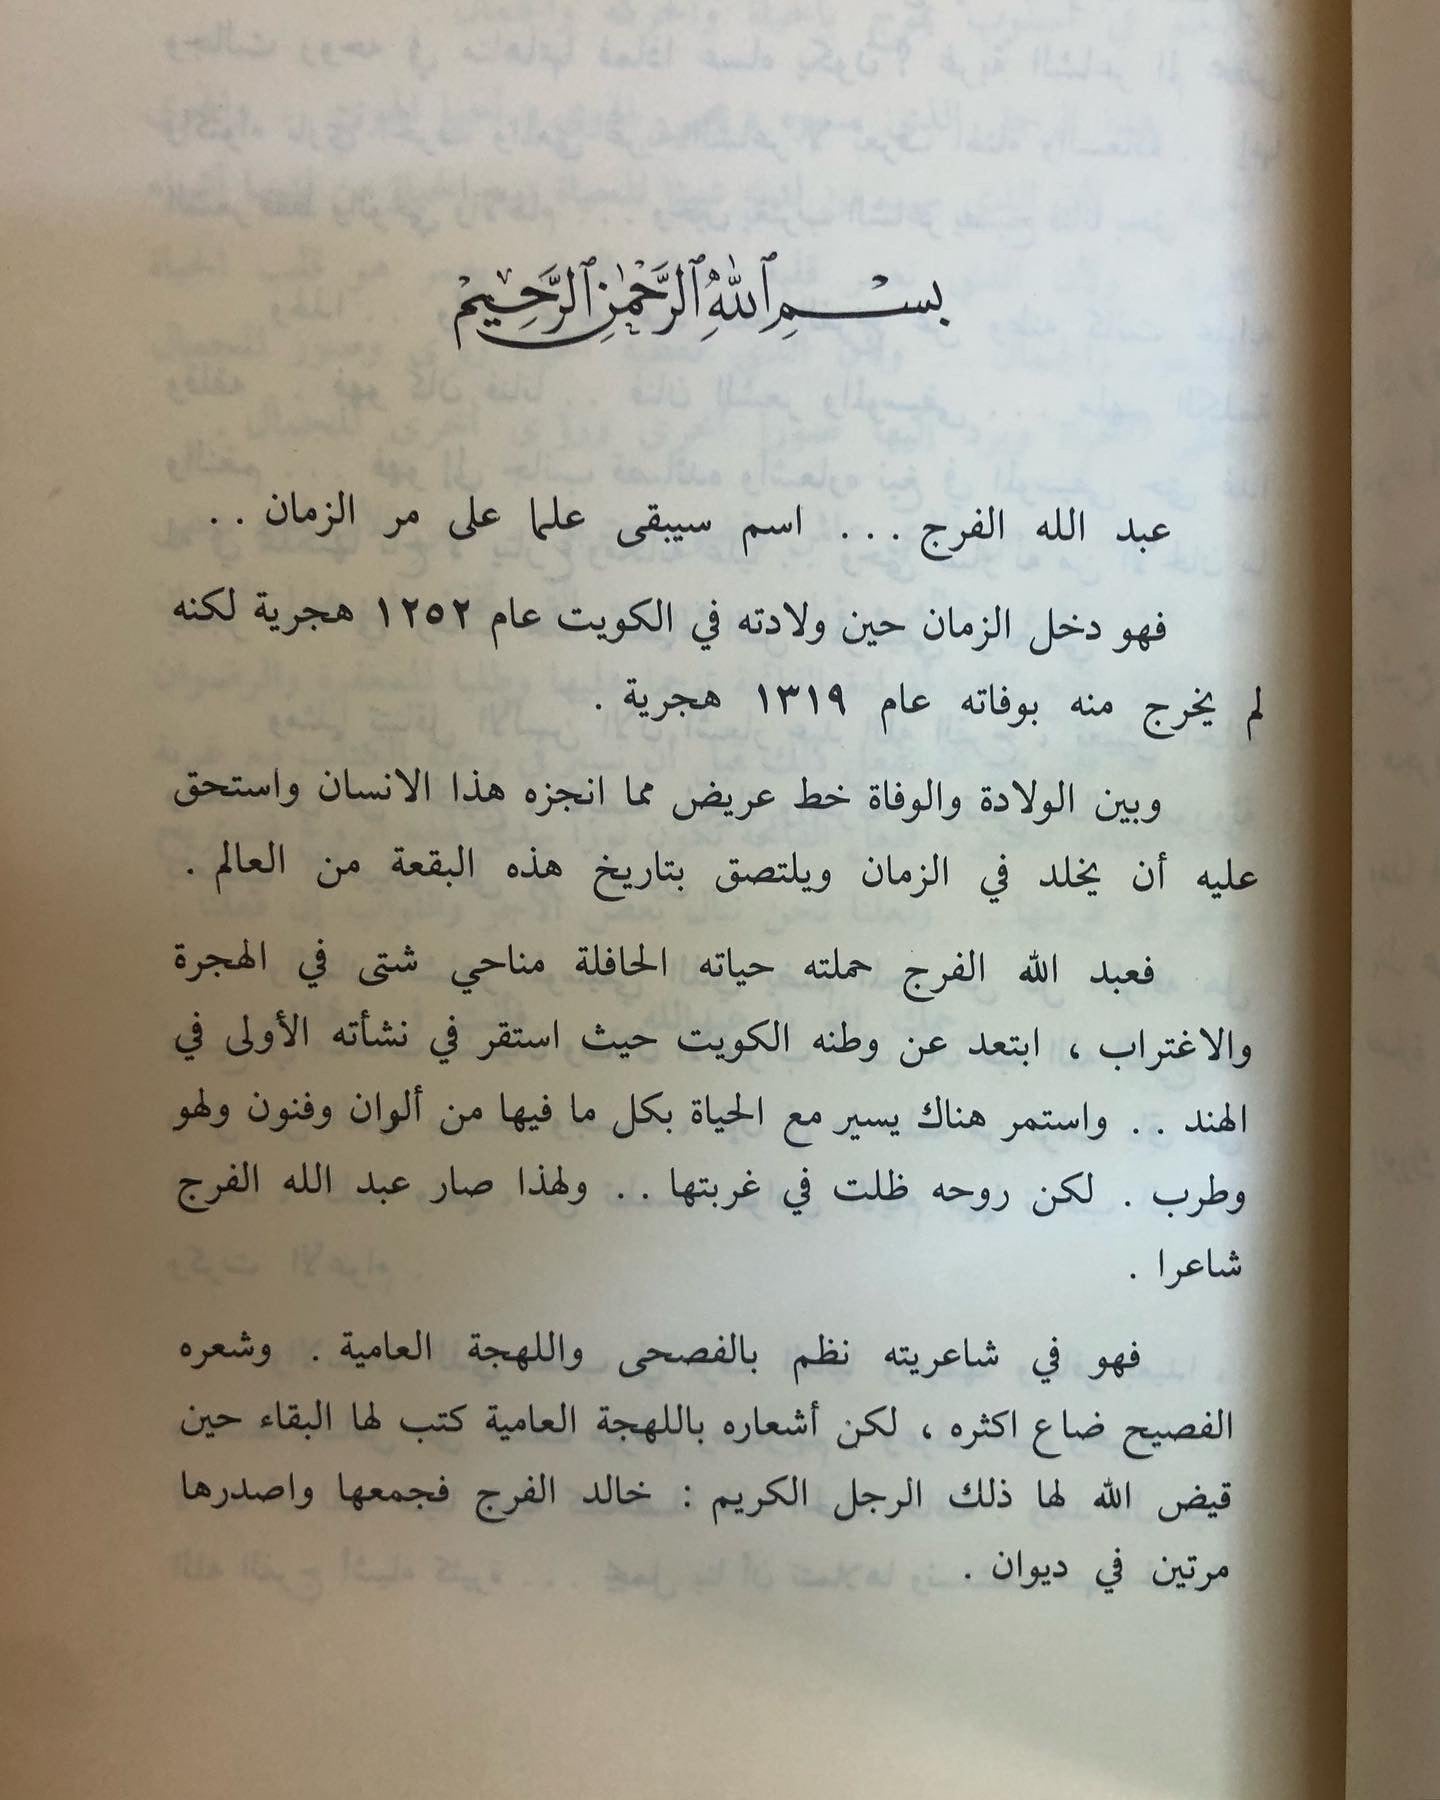 بسم الله الرحمن الرحيم
عبد الله الفرج ... اسم سيبقى علما على مر الزمان ..
فهو دخل الزمان حين ولادته في الكويت عام ١٢٥٢ هجرية لكنه
لم يخرج منه بوفاته عام ١٣١٩ هجرية .
وبين الولادة والوفاة خط عريض مما انجزه هذا الانسان واستحق
عليه أن يخلد في الزمان ويلتصق بتاريخ هذه البقعة من العالم .
فعبد الله الفرج حملته حياته الحافلة مناحي شتى في الهجرة
والاغتراب ، ابتعد عن وطنه الكويت حيث استقر في نشأته الأولى في
الهند .. واستمر هناك يسير مع الحياة بكل ما فيها من ألوان وفنون ولهو
وطرب . لكن روحه ظلت في غربتها .. ولهذا صار عبد الله الفرج
شاعرا .
فهو في شاعريته نظم بالفصحى واللهجة العامية . وشعره
الفصيح ضاع اكثره ، لكن أشعاره باللهجة العامية كتب لها البقاء حين
قيض الله لها ذلك الرجل الكريم : خالد الفرج فجمعها واصدرها
مرتين في ديوان .